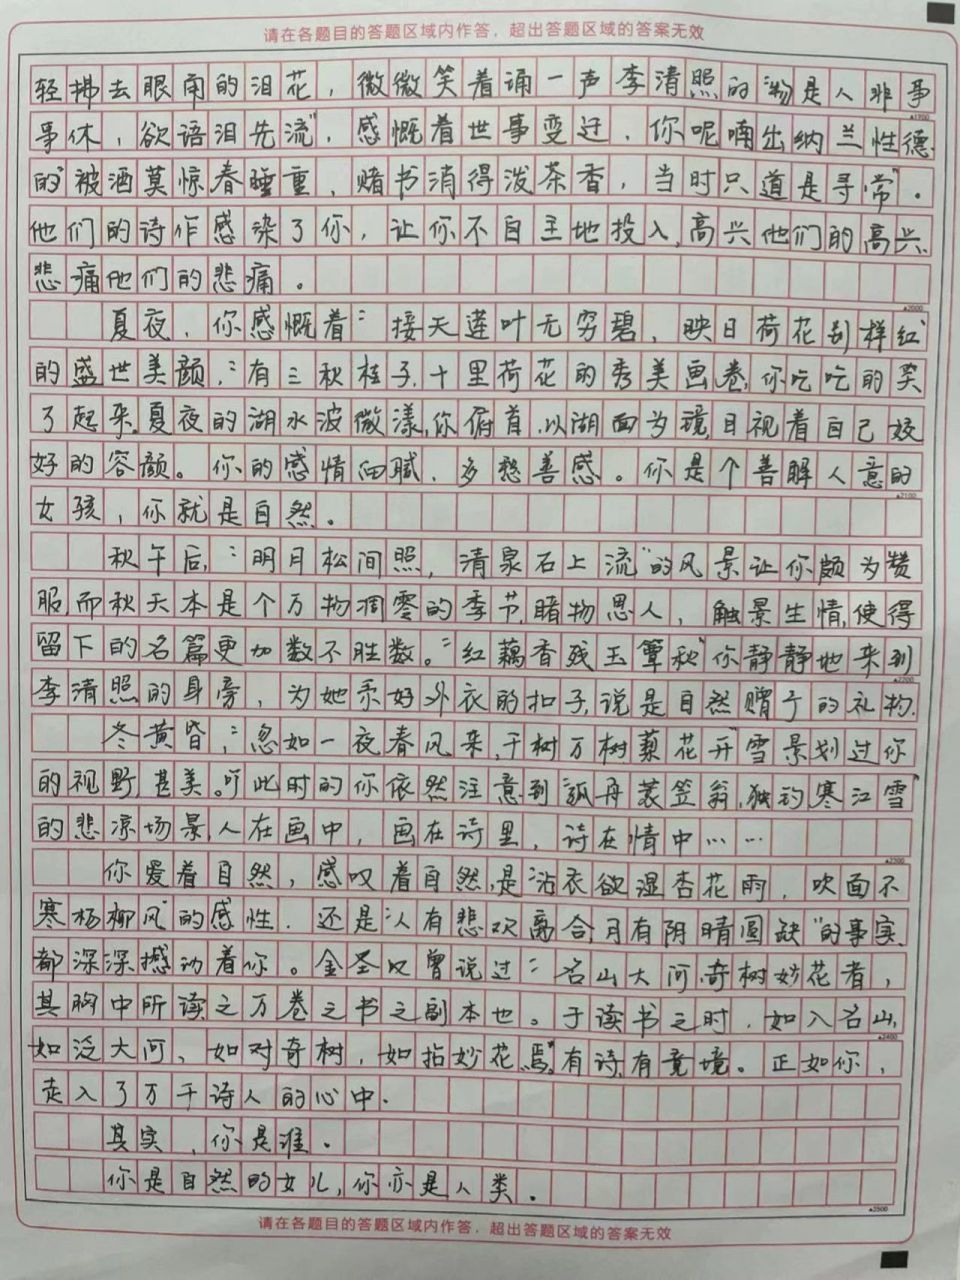 请在各题目的答题区域内作答，超出答题区域的答案无效
轻拂去眼角的泪花，微微笑着诵一声李清照的“物是人非事
▲1900
事休，欲语泪先流”，感慨着世事变迁，你呢喃出纳兰性德
的“被酒莫惊春睡重，赌书消得泼茶香，当时只道是寻常”。
他们的诗作感染了你，让你不自主地投入，高兴他们的高兴、
悲痛他们的悲痛。
▲2000
夏夜，你感慨着“接天莲叶无穷碧，映日荷花别样红”
的盛世美颜，“有三秋桂子，十里荷花的秀美画卷，你吃吃的笑
了起来。夏夜的湖水波微漾，你俯首，以湖面为境，目视着自己姣
好的容颜。你的感情细腻，多愁善感。你是个善解人意的
▲2100
女孩，你就是自然。
秋午后，“明月松间照，清泉石上流”的风景让你颇为赞
服而秋天本是个万物凋零的季节，睹物思人，触景生情，使得
留下的名篇更加数不胜数。“红藕香残玉簟秋”你静静地来到
▲2200
李清照的身旁，为她系好外衣的扣子，说是自然赠予的礼物。
冬黄昏，“忽如一夜春风来，千树万树梨花开”雪景划过你
的视野甚美。吖此时的你依然注意到孤舟蓑笠翁，独钓寒江雪”
的悲凉场景，人在画中，画在诗里，诗在情中……
▲2300
你爱着自然，感叹着自然，是“沾衣欲湿杏花雨，吹面不
寒杨柳风”的感性，还是“人有悲欢离合，月有阴晴圆缺”的事实，
都深深撼动着你。金圣叹曾说过“名山大河，奇树妙花者，
其胸中所读之万卷之书之副本也。于读书之时，如入名山，
▲2400
如泛大河、如对奇树，如拈妙花焉”有诗，有竟境。正如你，
走入了万千诗人的心中。
其实，你是谁。
你是自然的女儿，你亦是人类。
▲2500
请在各题目的答题区域内作答，超出答题区域的答案无效